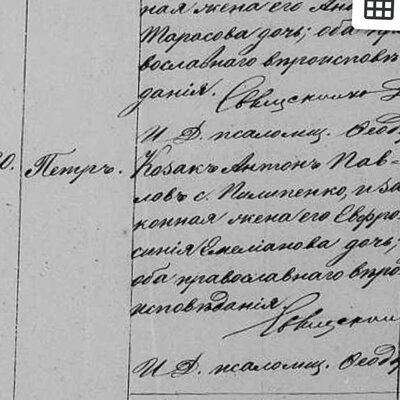 ная жена его Анн
Тарасова дочь; оба пр
вославнаго вѣроисповѣ
данія. Священникъ
И. Д. псаломщ. Ѳеод
0. Петръ. Козакъ Антонъ Пав-
ловъ с. Пилипенко, и за
конная жена его Евфро
синія Емеліанова дочь;
оба православнаго вѣро
исповѣданія.
Священни
И. Д. псаломщ. Ѳеодо